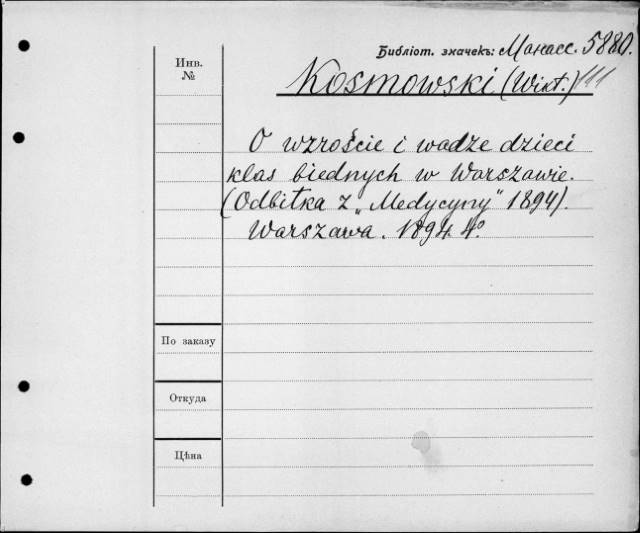 Библіот. значекъ: Манасс. 5880.
Инв.
№
Kosmowski (Wikt.)
O wzroście i wadze dzieci
klas biednych w Warszawie.
(Odbitka z „Medycyny" 1894).
Warszawa. 1894. 4°.
По заказу
Откуда
Цѣна